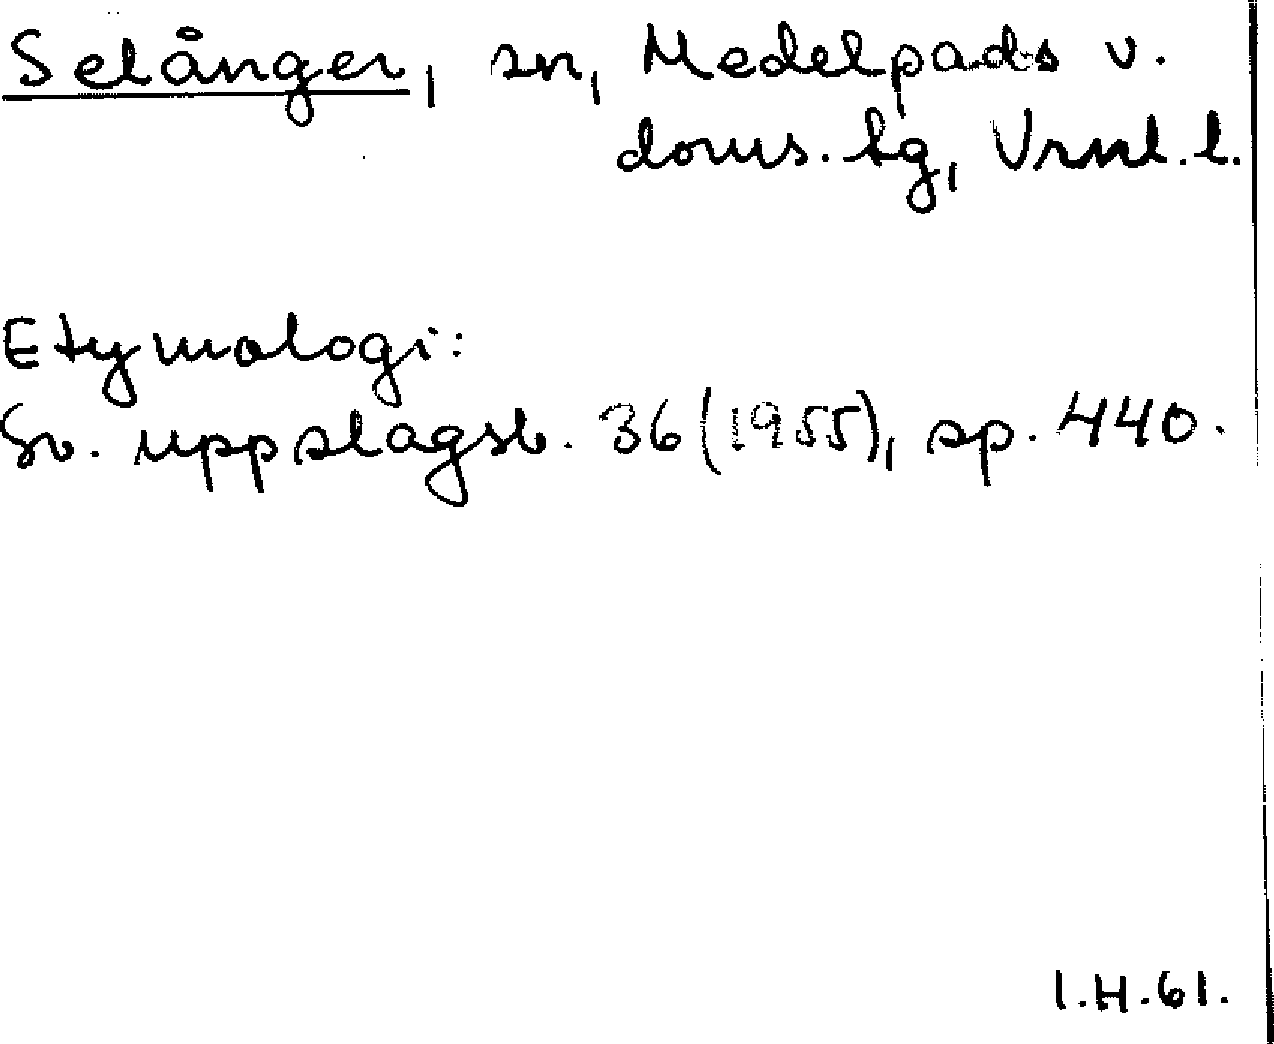 Selånger, sn, Medelpads v.
doms.sg, Vrnl.l.
Etymologi:
Sv. uppslagsb. 36 (1955), sp. 440.
I.H.61.